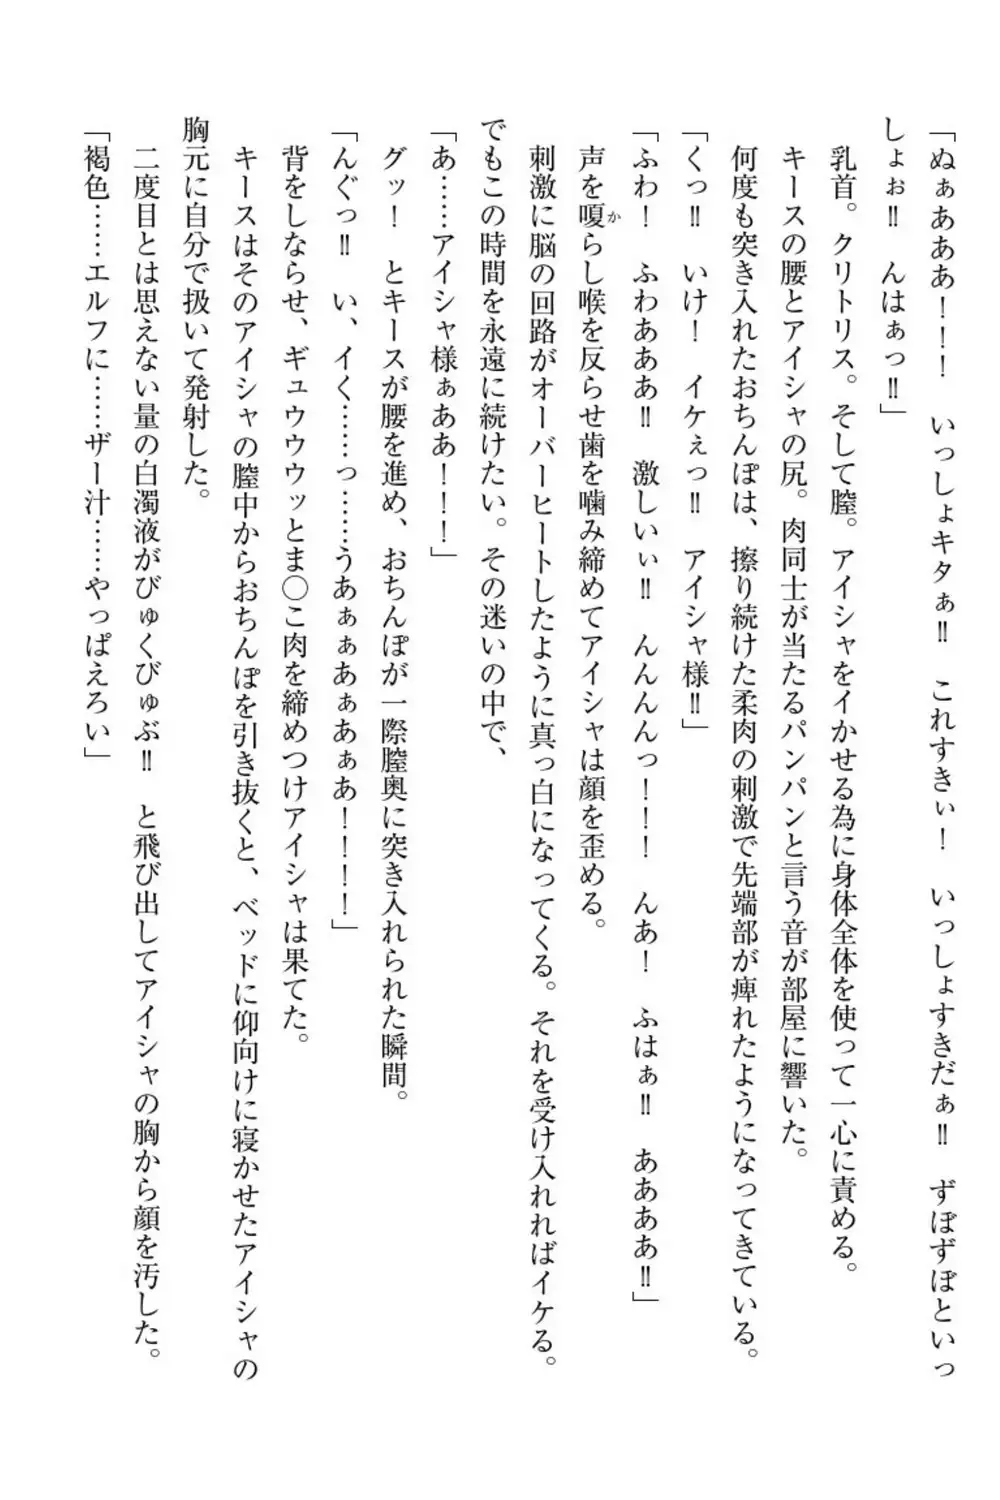 「ぬぁあああ！！！　いっしょキタぁ‼　これすきぃ！　いっしょすきだぁ‼　ずぼずぼといっ
しょぉ‼　んはぁっ‼」
乳首。クリトリス。そして膣。アイシャをイかせる為に身体全体を使って一心に責める。
キースの腰とアイシャの尻。肉同士が当たるパンパンと言う音が部屋に響いた。
何度も突き入れたおちんぽは、擦り続けた柔肉の刺激で先端部が痺れたようになってきている。
「くっ‼　いけ！　イケぇっ‼　アイシャ様‼」
「ふわ！　ふわあああ‼　激しいぃ‼　んんんんっ！！！　んあ！　ふはぁ‼　ああああ‼」
声を嗄（か）らし喉を反らせ歯を噛み締めてアイシャは顔を歪める。
刺激に脳の回路がオーバーヒートしたように真っ白になってくる。それを受け入れればイケる。
でもこの時間を永遠に続けたい。その迷いの中で、
「あ……アイシャ様ぁああ！！！」
グッ！　とキースが腰を進め、おちんぽが一際膣奥に突き入れられた瞬間。
「んぐっ‼　い、イく……っ……うあぁぁあぁあぁあ！！！！」
背をしならせ、ギュウウウッとま◯こ肉を締めつけアイシャは果てた。
キースはそのアイシャの膣中からおちんぽを引き抜くと、ベッドに仰向けに寝かせたアイシャの
胸元に自分で扱いて発射した。
二度目とは思えない量の白濁液がびゅくびゅぶ‼　と飛び出してアイシャの胸から顔を汚した。
「褐色……エルフに……ザー汁……やっぱえろい」